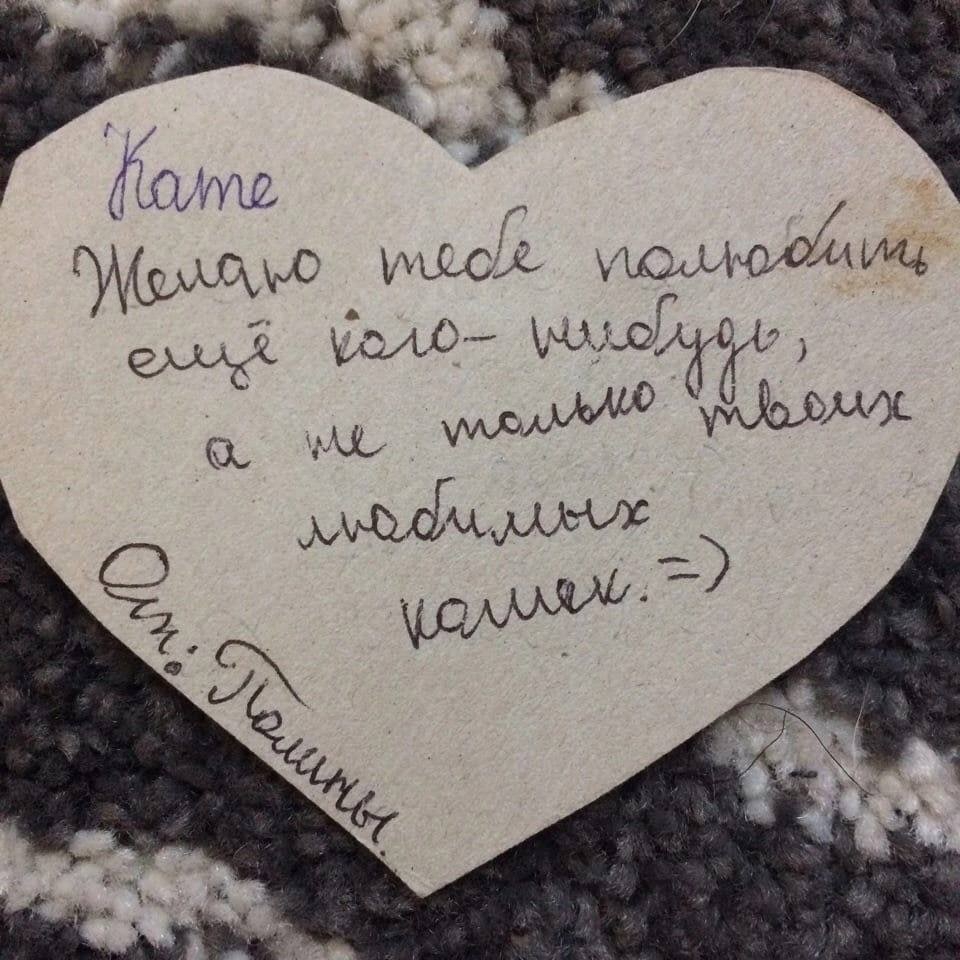 Кате
Желаю тебе полюбить
ещё кого-нибудь,
а не только твоих
любимых
кошек. =)
От: Полины.